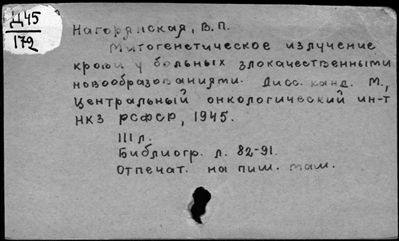 Д45
172
Нагорянская, В.П.
Митогенетическое излучение
крови у больных злокачественными
новообразованиями. Дисс. канд. М.,
Центральный онкологический ин-т
НКЗ РСФСР, 1945.
111 л.
Библиогр. л. 82-91.
Отпечат. на пиш. маш.